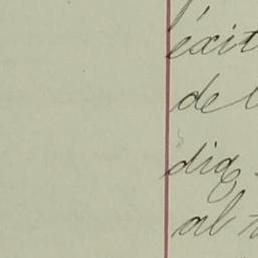 éxit
de l
dig
al